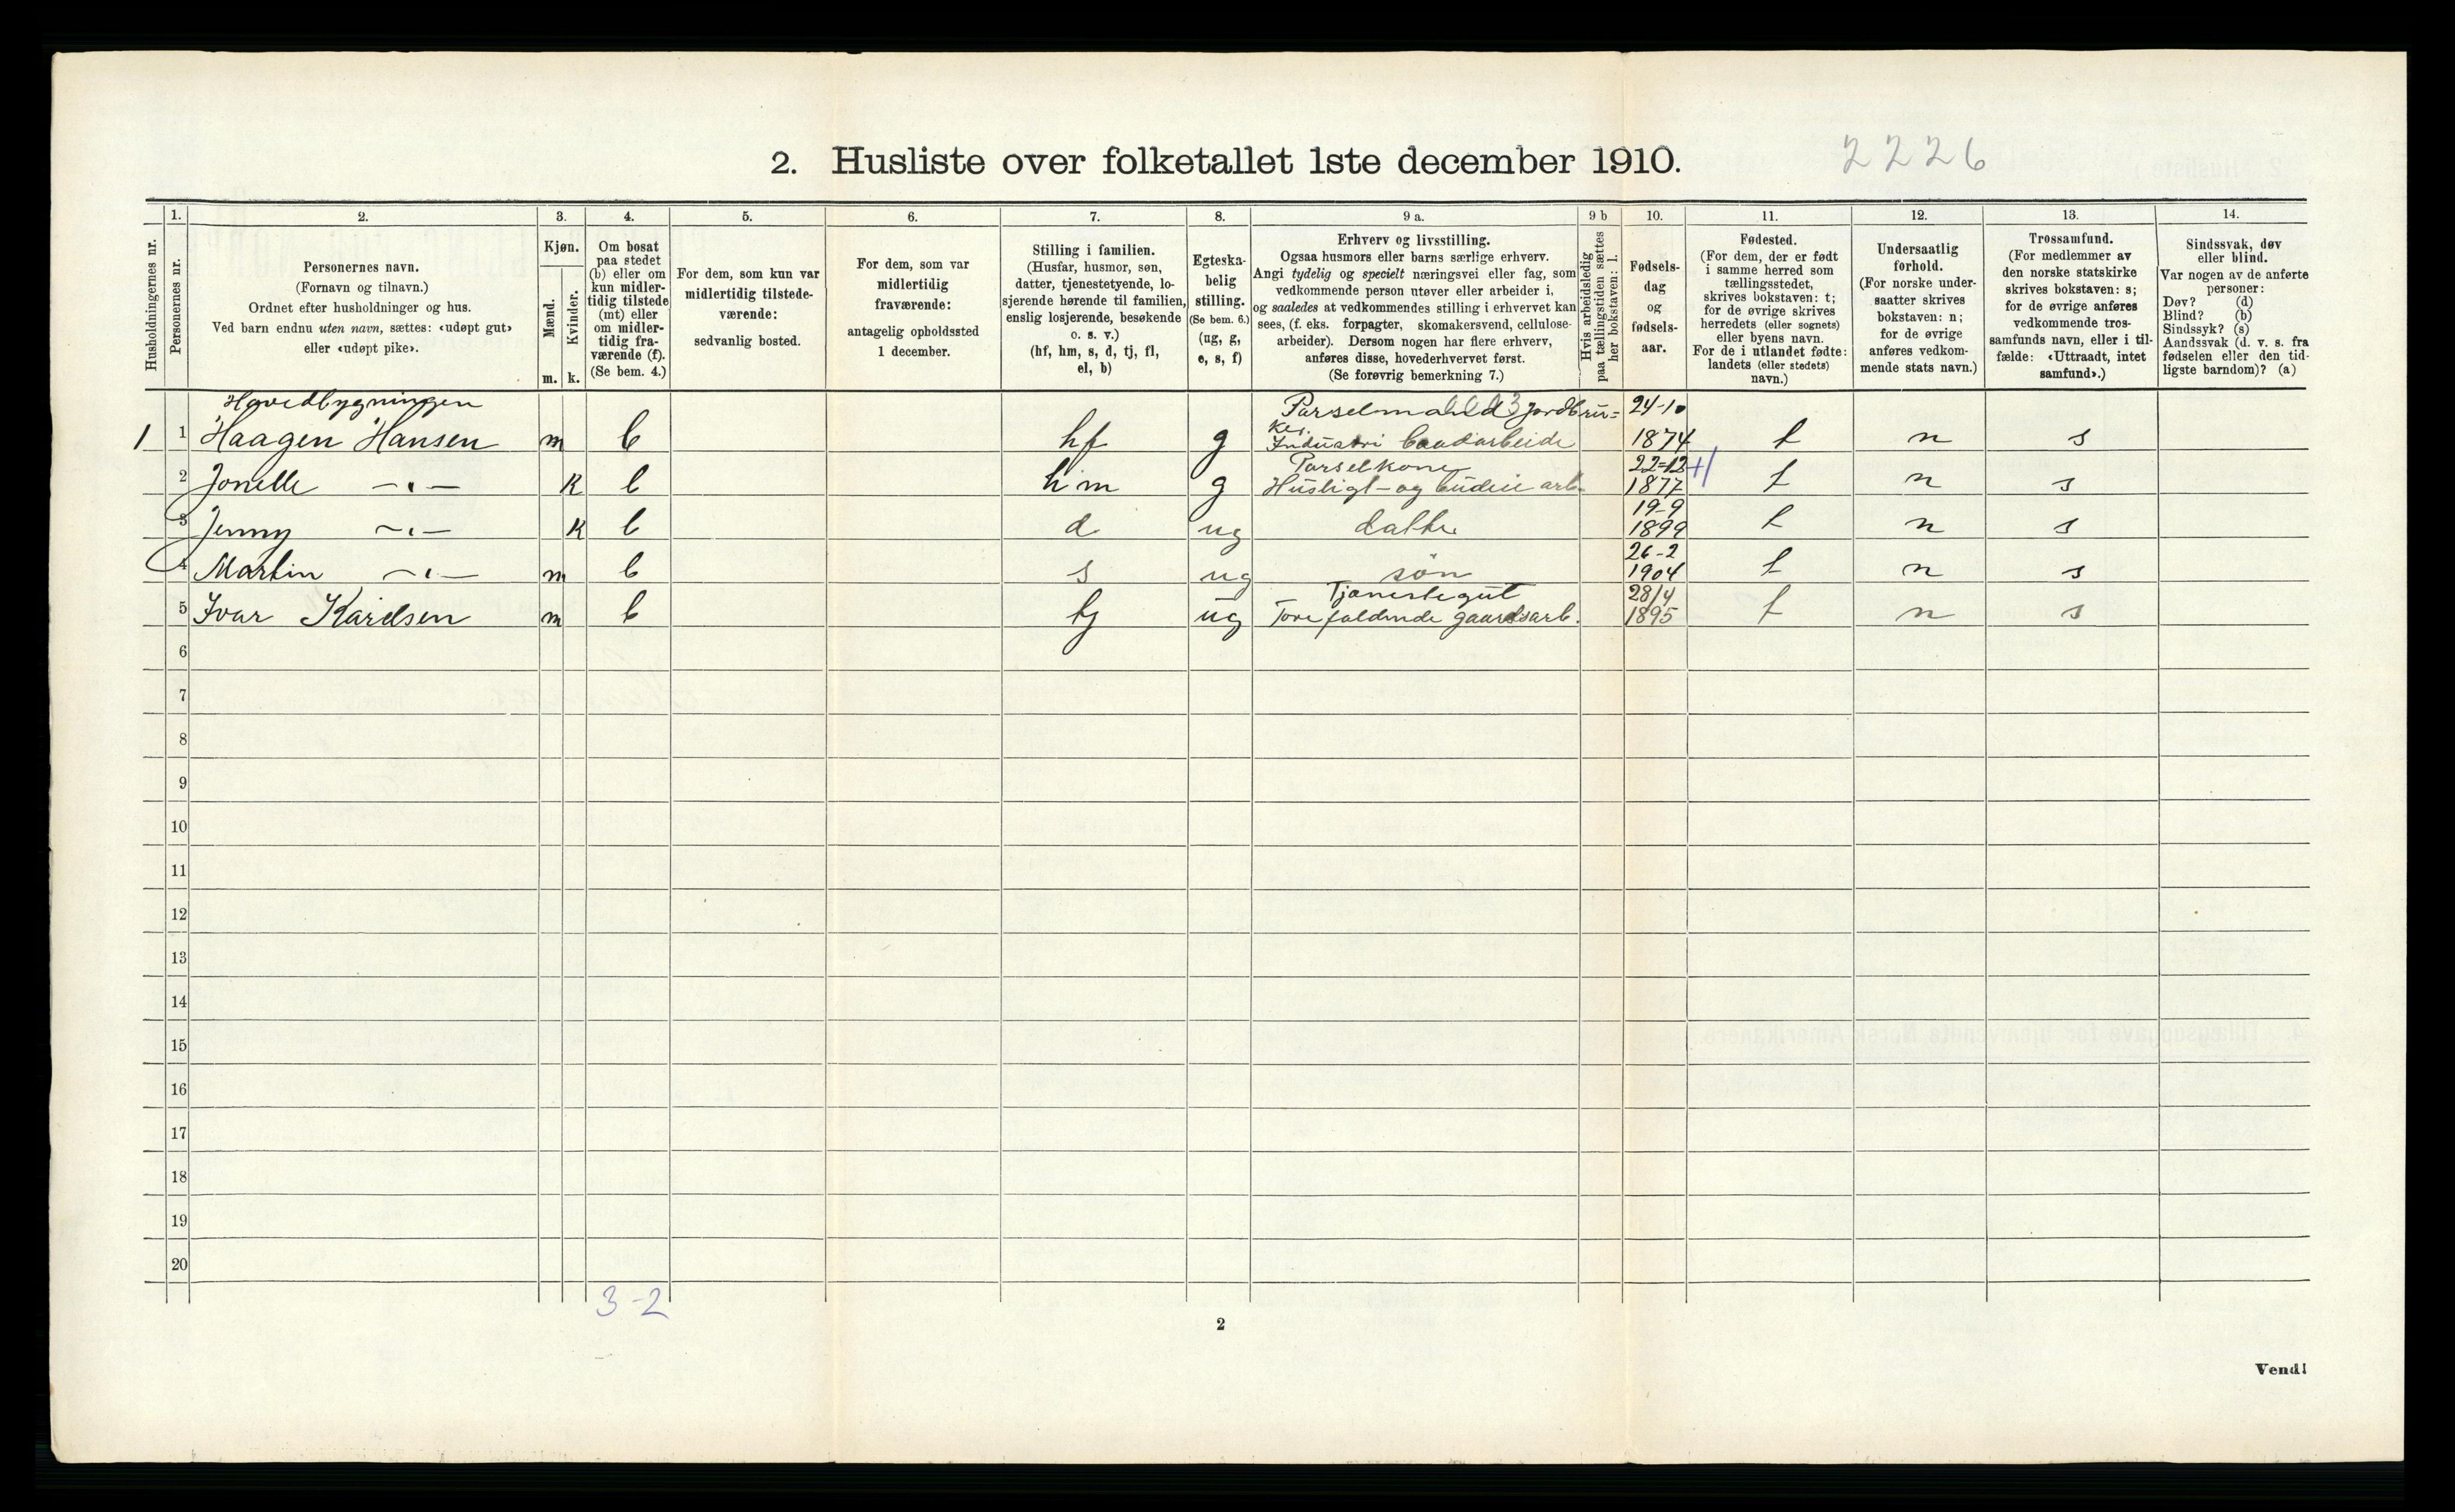 2. Husliste over folketallet 1ste december 1910.
2226
Husholdningernes nr.
1.
Personernes nr.
2.
Personernes navn.
(Fornavn og tilnavn.)
Ordnet efter husholdninger og hus.
Ved barn endnu uten navn, sættes: «udøpt gut»
eller «udøpt pike».
3.
Kjøn.
Mænd.
Kvinder.
m. k.
4.
Om bosat
paa stedet
(b) eller om
kun midler-
tidig tilstede
(mt) eller
om midler-
tidig fra-
værende (f).
(Se bem. 4.)
5.
For dem, som kun var
midlertidig tilstede-
værende:
sedvanlig bosted.
6.
For dem, som var
midlertidig
fraværende:
antagelig opholdssted
1 december.
7.
Stilling i familien.
(Husfar, husmor, søn,
datter, tjenestetyende, lo-
sjerende hørende til familien,
enslig losjerende, besøkende
o. s. v.)
(hf, hm, s, d, tj, fl,
el, b)
8.
Egteska-
belig
stilling.
(Se bem. 6.)
(ug, g,
e, s, f)
9 a.
Erhverv og livsstilling.
Ogsaa husmors eller barns særlige erhverv.
Angi tydelig og specielt næringsvei eller fag, som
vedkommende person utøver eller arbeider i,
og saaledes at vedkommendes stilling i erhvervet kan
sees, (f. eks. forpagter, skomakersvend, cellulose-
arbeider). Dersom nogen har flere erhverv,
anføres disse, hovederhvervet først.
(Se forøvrig bemerkning 7.)
9 b
Hvis arbeidsledig
paa tællingstiden sættes
her bokstaven: l.
10.
Fødsels-
dag
og
fødsels-
aar.
11.
Fødested.
(For dem, der er født
i samme herred som
tællingsstedet,
skrives bokstaven: t;
for de øvrige skrives
herredets (eller sognets)
eller byens navn.
For de i utlandet fødte:
landets (eller stedets)
navn.)
12.
Undersaatlig
forhold.
(For norske under-
saatter skrives
bokstaven: n;
for de øvrige
anføres vedkom-
mende stats navn.)
13.
Trossamfund.
(For medlemmer av
den norske statskirke
skrives bokstaven: s;
for de øvrige anføres
vedkommende tros-
samfunds navn, eller i til-
fælde: «Uttraadt, intet
samfund».)
14.
Sindssvak, døv
eller blind.
Var nogen av de anførte
personer:
Døv? (d)
Blind? (b)
Sindssyk? (s)
Aandssvak (d. v. s. fra
fødselen eller den tid-
ligste barndom)? (a)
Hovedbygningen
Parselmand Jordbrü=
24-10
1 1 Haagen Hansen m b hf g Ker. Industri 1874 t n s
Parselkone
22=12
2 Jonelle —„— K b hm g Husligt- og budeie arb. 1877 t n s
19-9
3 Jenny —„— K b d ug datter 1899 t n s
26-2
4 Martin —„— m b s ug sön 1904 t n s
Tjenestegut
28/4
5 Ivar Karelsen m b tj ug Forefaldende gaardsarb. 1895 t n s
6
7
8
9
10
11
12
13
14
15
16
17
18
19
20
3-2
2
Vend!